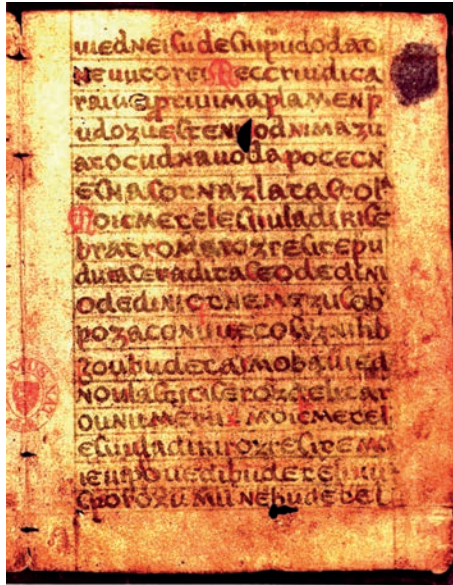 uiedneiſudeſkip̄udodat
neuutorei Meccriudica
raiucip̄tiuimaplamenp̄
udozueſteniPodnimazu
atocudnauodapocecn
eſnaſotnazlataſtola
Moikmeteleſiiuladikiſe
bratromarozreſitepu
ſeuaditaſeodedini
odediniotnemezuſob
pozaconuuecoſiznihb
zoubudetaimobauied
noulaſticiſerozdelitar
ounumeru moikmetel
eſiiuladikirozreſitemo
iepouedibudeteliuu
ſporozumilnebudetel